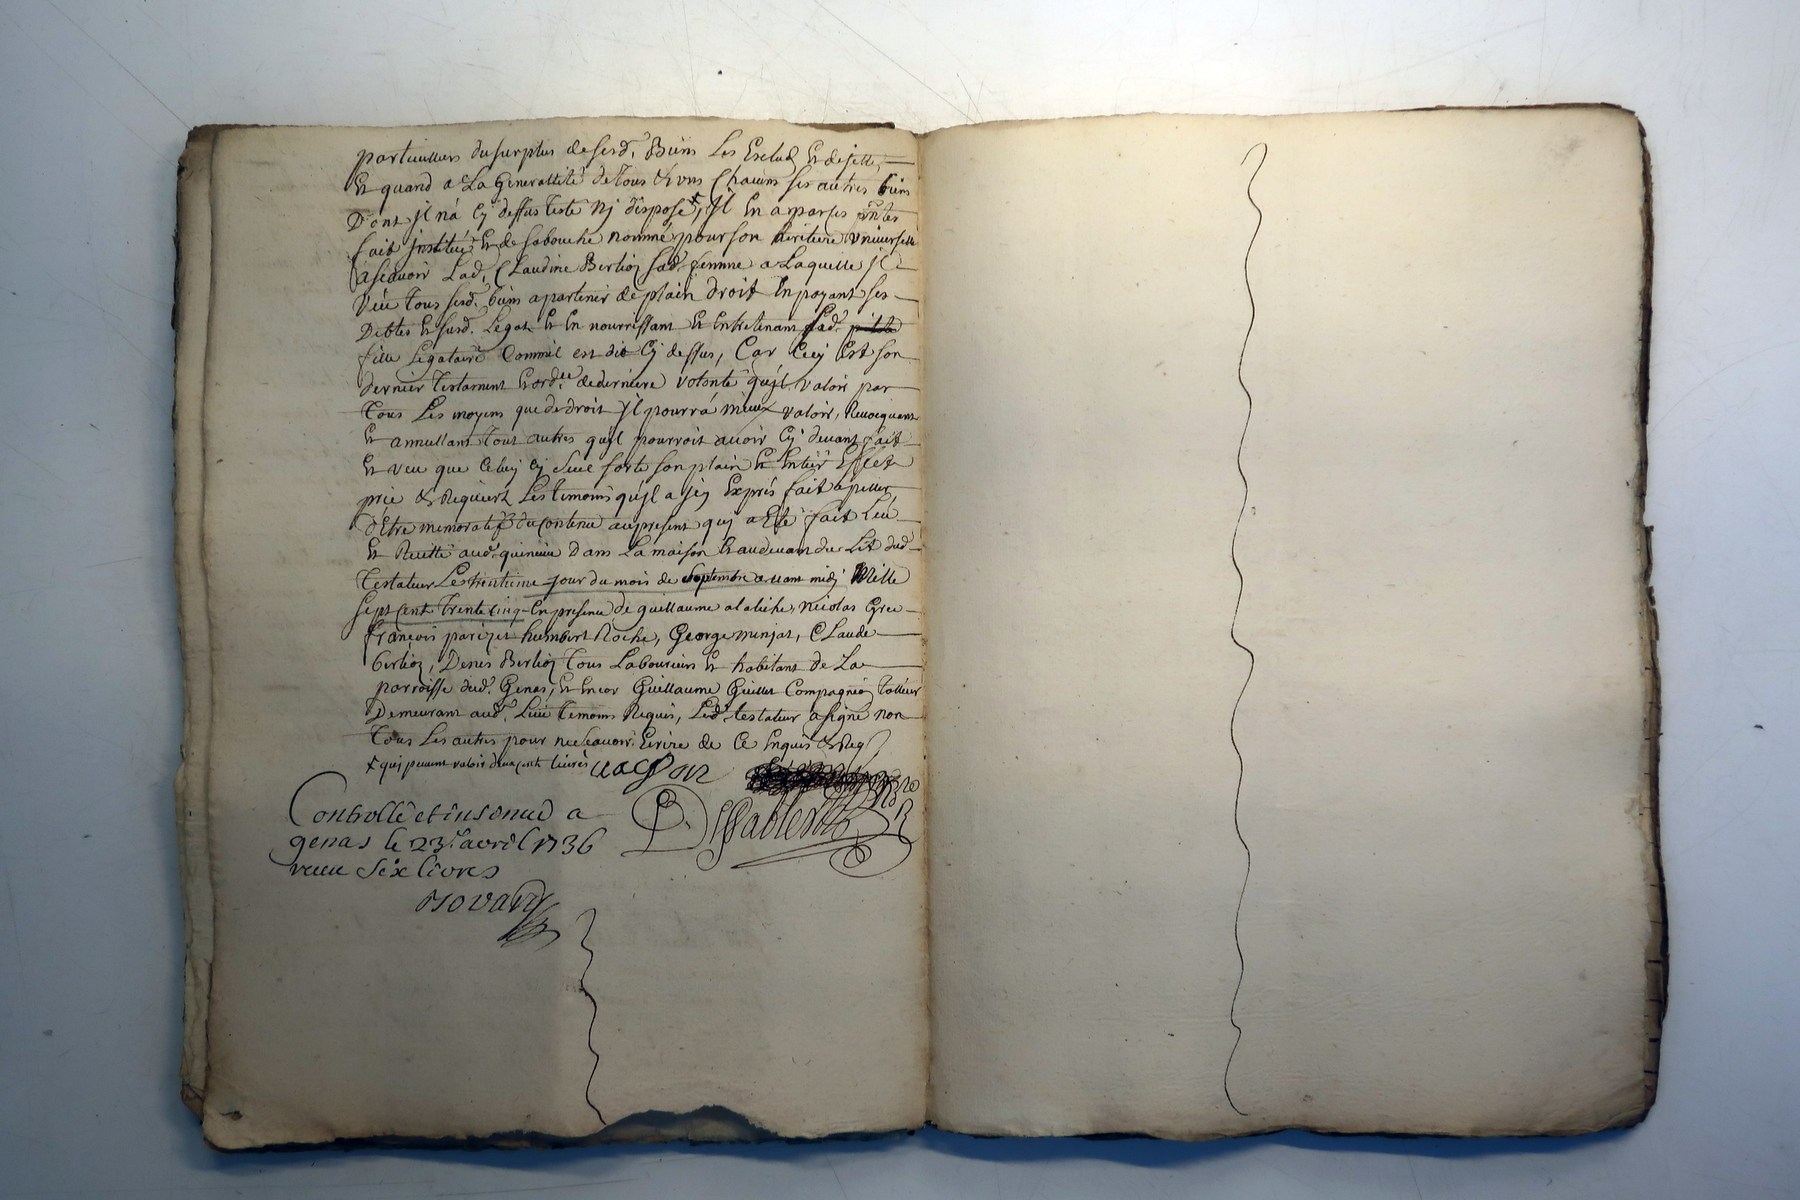 particulliers du surplus de sesd. Biens Les Exclud Et dejette,
Et quand a La Generallité de tous Et uns Chacuns ses autres biens
Dont jl n'a Cy dessus testé Ny disposé, + Jl En a par ses
fait jnstitüé Et de sa bouche nommé pour son héritière Universelle
asçavoir Lad. Claudine Berlioz sad. femme a Laquelle jl
Veu tous sesd. biens apartenir de plain droit En payant ses
Debtes Et susd. Legat Et En nourrissant Et Entretenant sad.
fille Légataire Comm'il est dit Cy dessus, Car Cecy Est son
dernier Testament Et ord.ce de derniere volonté qu'jl valoir par
Tous Les moyens que de droit Jl pourra mieux valoir, Revocquant
Et annullant Tout autres qu'jl pourroit avoir Cy devant fait
Et veu que Celuy Cy Seul sorte son plain Et Entier Effect
prie & Requiert Les temoins qu'jl a jcy Exprés fait apeller,
d'Etre memoratifs du Contenu au present quy a Eté fait Leu
Et Recitté aud. Dans La maison Et au devant du Lit dud.
Testateur Le trentieme jour du mois de Septembre avant midy Mille
sept Cent Trente Cinq En presence de guillaume nicolas
françois humbert Roche, George minjat, Claude
berlioz, Denis Berlioz Tous Laboureurs Et habitant de La
parroisse dud. Genas, Et Encor Guillaume Guillet Compagnion Tailleur
Demeurant aud. Lieu Temoins Requis, Led. testateur a signé non
Tous Les autres pour ne sçavoir Ecrire de Ce Enquis & Req.
+ qui peuvent valoir deux cents livres
Controllé et insinué a
genas le 23.e avril 1736
receu Six livres